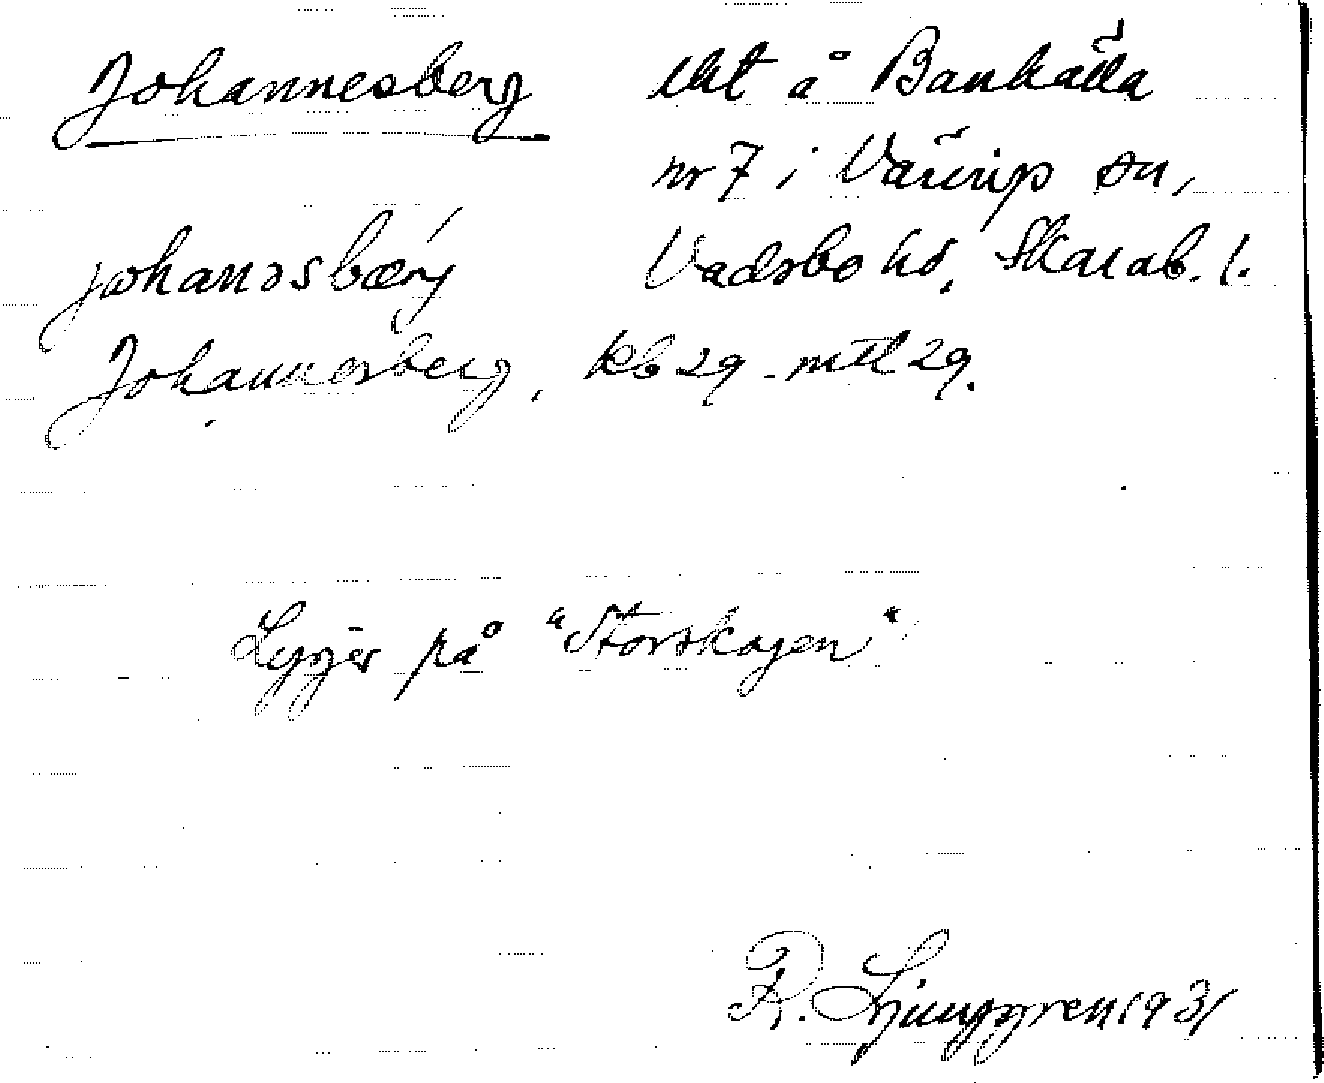 Johannesberg
lht å Bankälla
nr 7 i Väring sn,
Vadsbo hd, Skarab. l.
johanəsbærj
Johannesberg, kb 29 - mtl 29.
Ligger på "Storskogen"
R. Ljunggren 1931